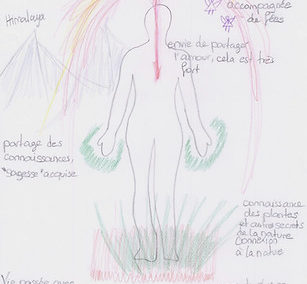 Himalaya
accompagnée
de fées
envie de partager
l'amour, cela est très
fort
partage des
connaissances,
"sagesse" acquise
connaissance
des plantes
et autres secrets
de la nature
connexion
à la nature
Vie passée avec